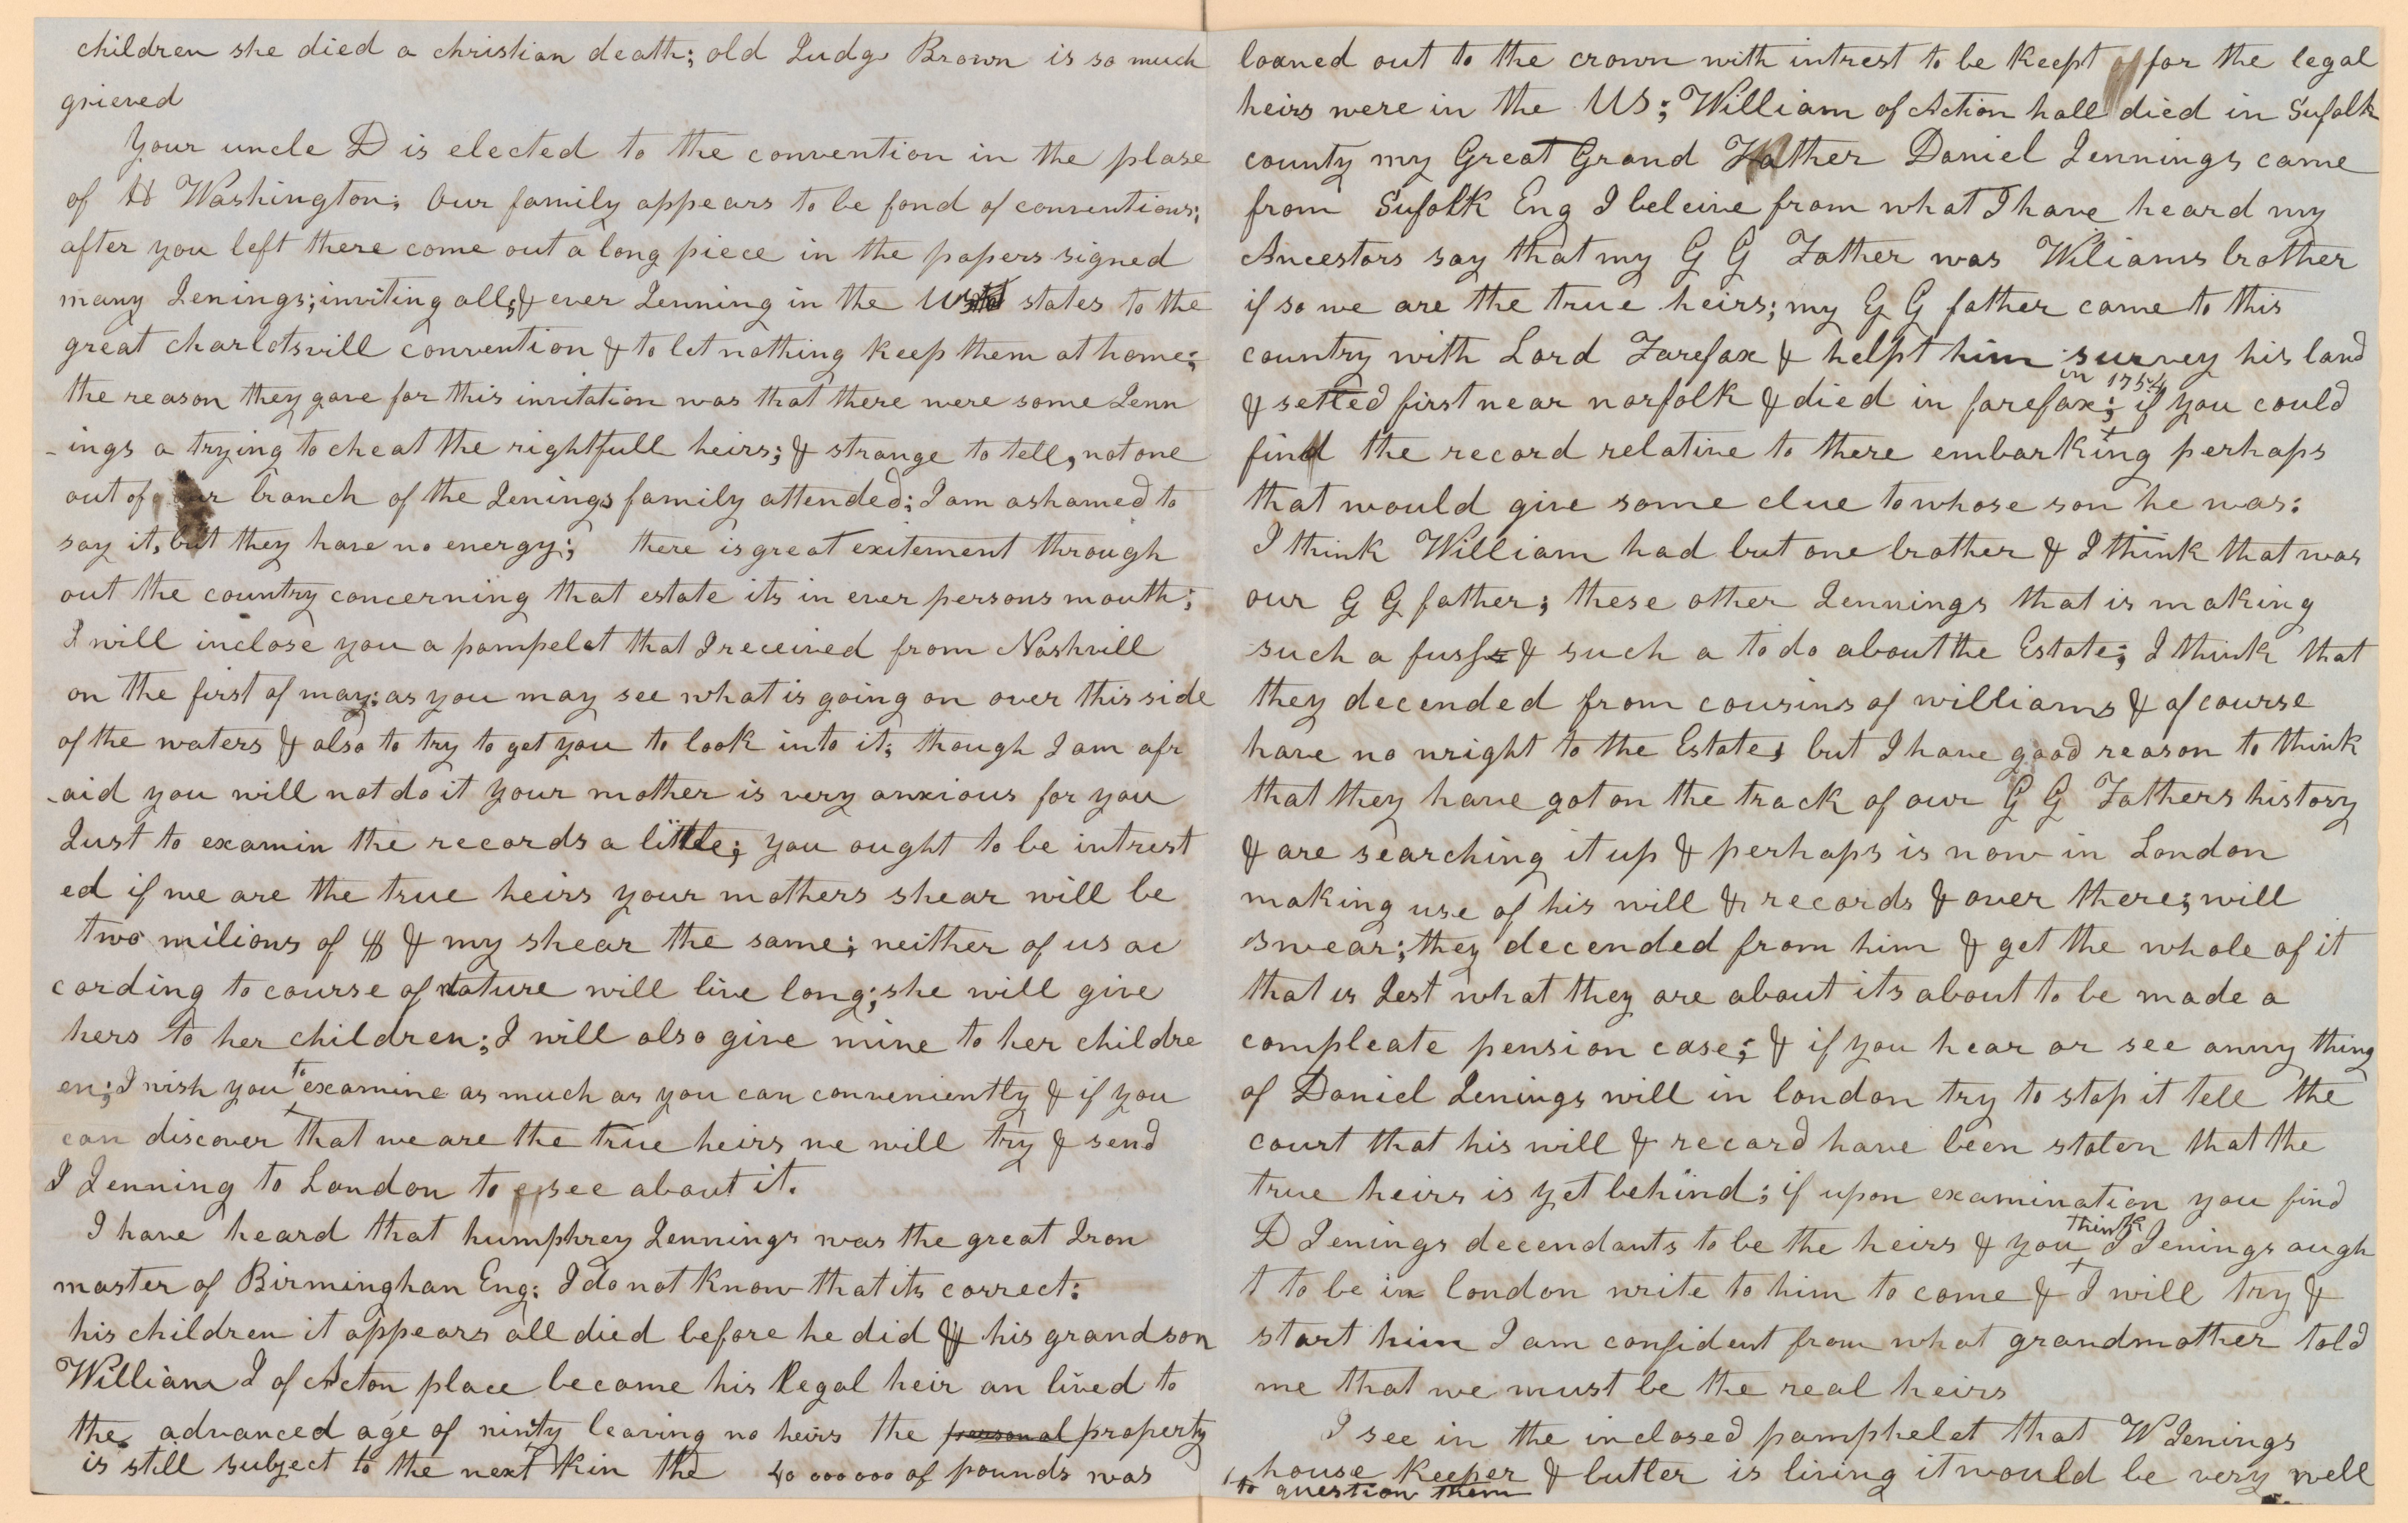 children she died a christian death; old Judge Brown is so much
grieved
Your uncle D is elected to the convention in the plase
of H Washington; Our family appears to be fond of conventions;
after you left there come out a long piece in the papers signed
many Jenings; inviting all; & ever Jenning in the states to the
great charlotsvill convention & to let nothing keep them at home;
the reason they gave for this invitation was that there were some Jenn
-ings a trying to cheat the rightfull heirs; & strange to tell, not one
out of our branch of the Jenings family attended; I am ashamed to
say it, but they have no energy; there is great exitement through
out the country concerning that estate its in ever persons mouth;
I will inclose you a pampelet that I received from Nashvill
on the first of may; as you may see what is going on over this side
of the waters & also to try to get you to look into it; though I am afr
-aid you will not do it your mother is very anxious for you
Just to examin the records a little; you ought to be intrest
ed if we are the true heirs your mothers shear will be
two milions of $ & my shear the same; neither of us ac
cording to course of nature will live long; she will give
hers to her children; I will also give mine to her childre
en; I wish you to examine as much as you can conveniently & if you
can discover that we are the true heirs we will try & send
J Jenning to London to see about it.
I have heard that humphrey Jennings was the great Iron
master of Birminghan Eng: I do not know that its correct:
his children it appears all died before he did & his grandson
William J of Acton place became his legal heir an lived to
the advanced age of ninty leaving no heirs the personal property
is still subject to the next kin the 40 000 000 of pounds was
loaned out to the crown with intrest to be keept for the legal
heirs were in the US; William of Action hall died in Sufolk
county my Great Grand Father Daniel Jennings came
from Sufolk Eng I beleive from what I have heard my
Ancestors say that my G G Father was Wiliams brother
if so we are the true heirs; my G G father came to this
country with Lord Farefax & helpt him survey his land
& setled first near norfolk & died in farefax in 1754; if you could
find the record relative to there embarking perhaps
that would give some clue to whose son he was:
I think William had but one brother & I think that was
our G G father; these other Jennings that is making
such a fuss & such a to do about the Estate; I think that
they decended from cousins of williams & of course
have no wright to the Estate, but I have good reason to think
that they have got on the track of our G G Fathers history
& are searching it up & perhaps is now in London
making use of his will & records & over there; will
swear; they decended from him & get the whole of it
that is Jest what they are about its about to be made a
compleate pension case; & if you hear or see anny thing
of Daniel Jenings will in london try to stop it tell the
court that his will & record have been stolen that the
true heirs is yet behind; if upon examination you find
D Jenings decendants to be the heirs & you think J Jenings ough
t to be in london write to him to come & I will try &
start him I am confident from what grandmother told
me that we must be the real heirs
I see in the inclosed pamphelet that W Jenings
house keeper & butler is living it would be very well
to question them